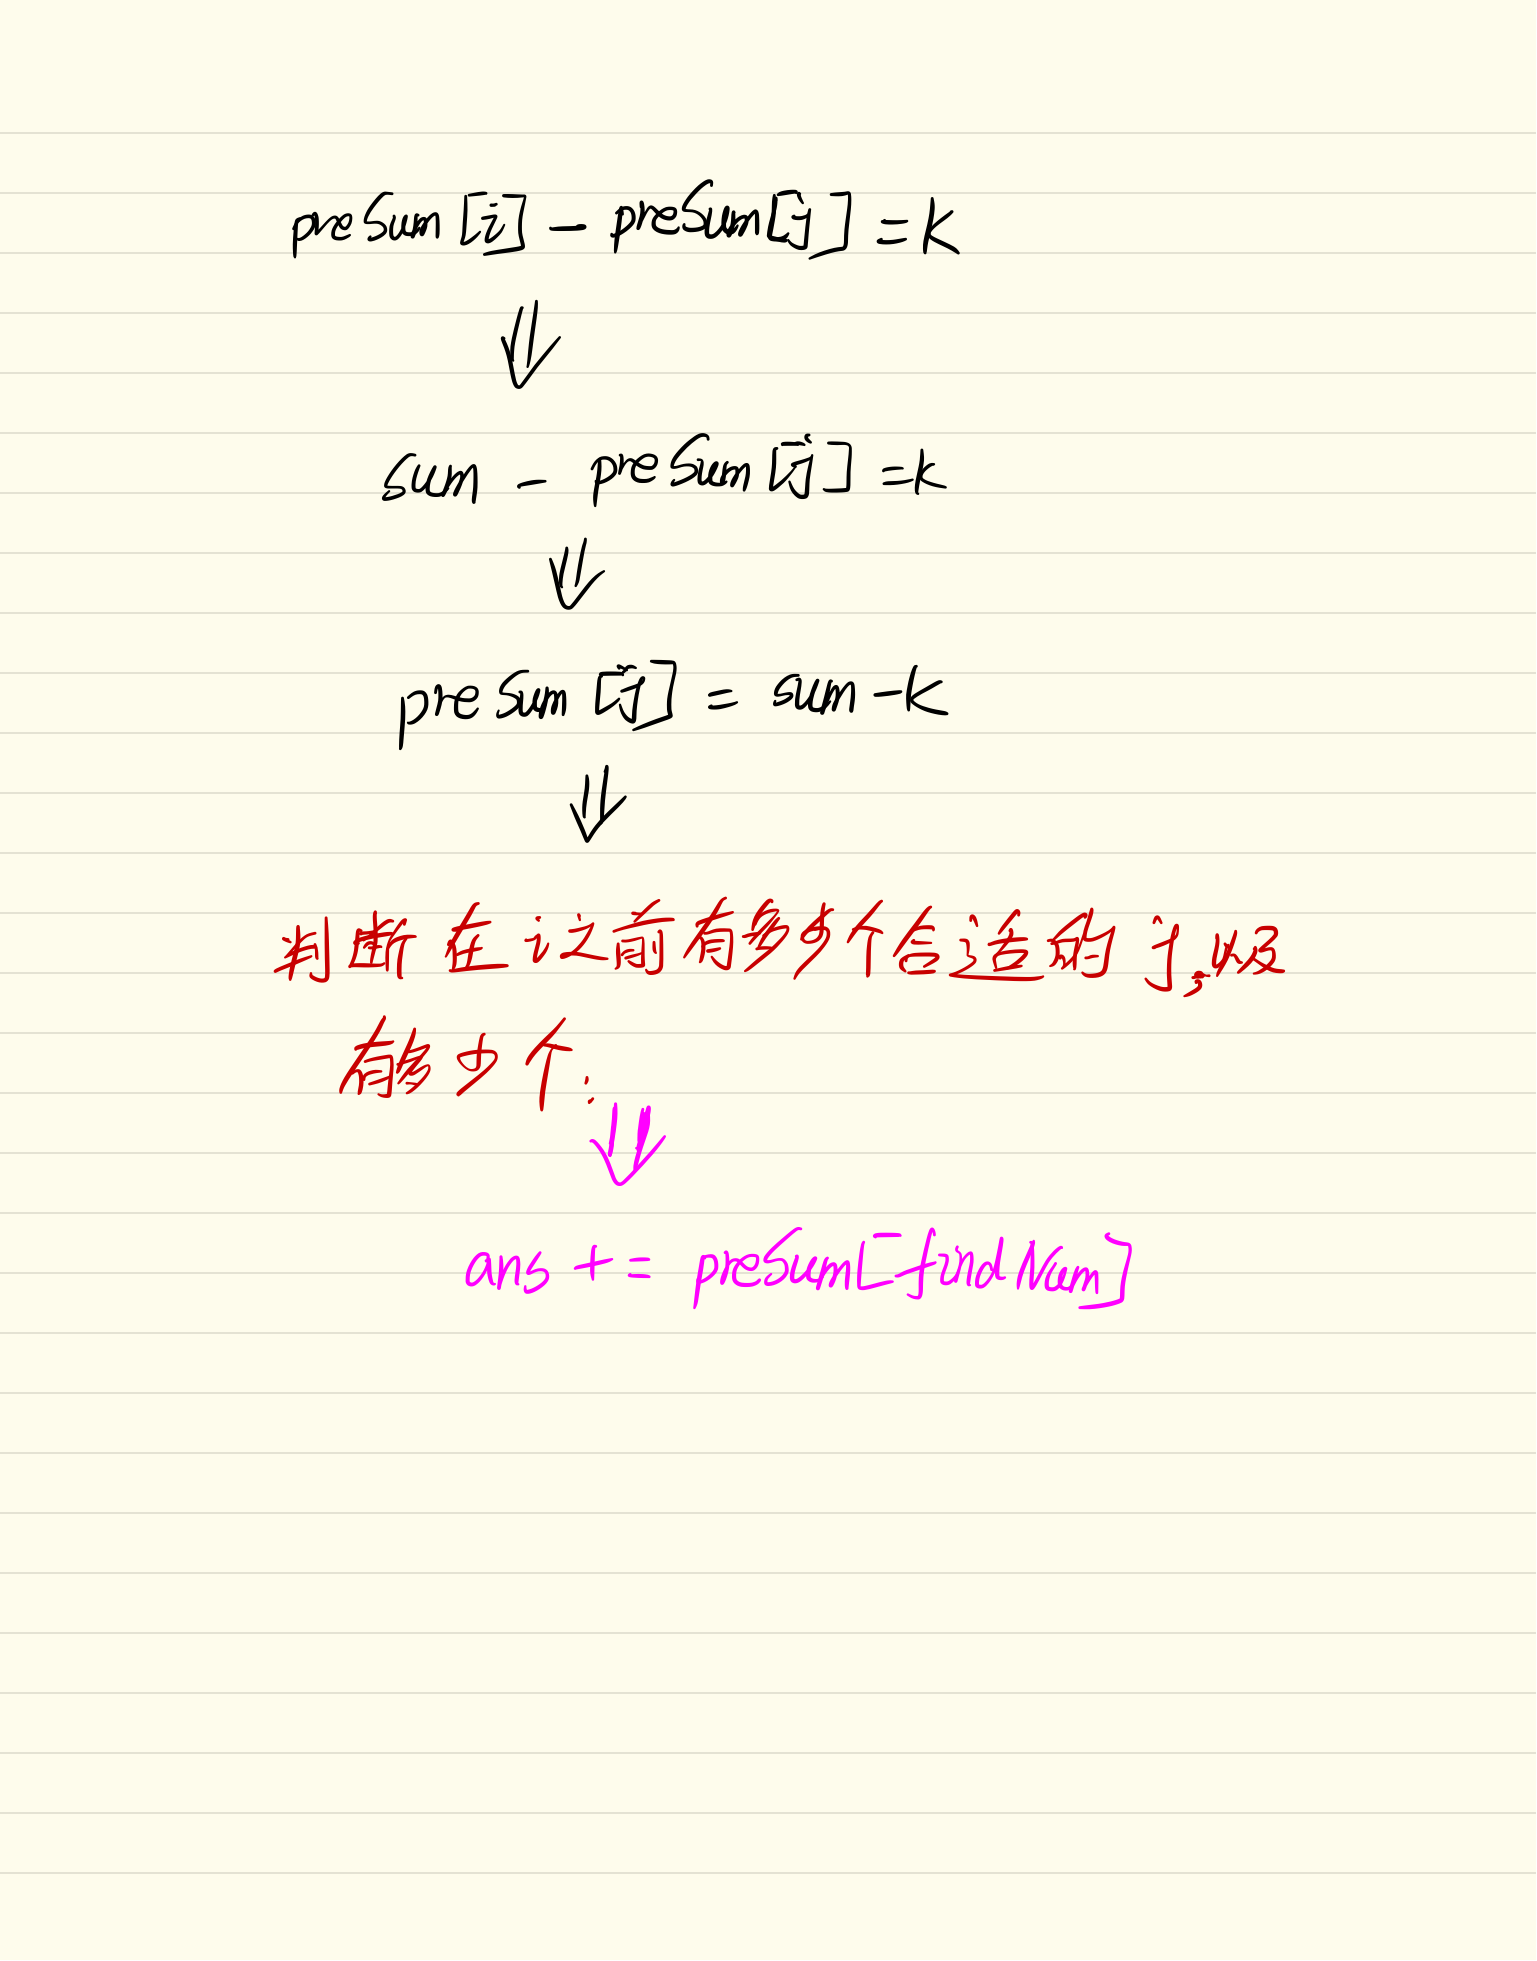 preSum[i] - preSum[j] = k
⇓
sum - preSum[j] = k
⇓
preSum[j] = sum - k
⇓
判断在i之前有多少个合适的j,以及
有多少个.
⇓
ans += preSum[findNum]